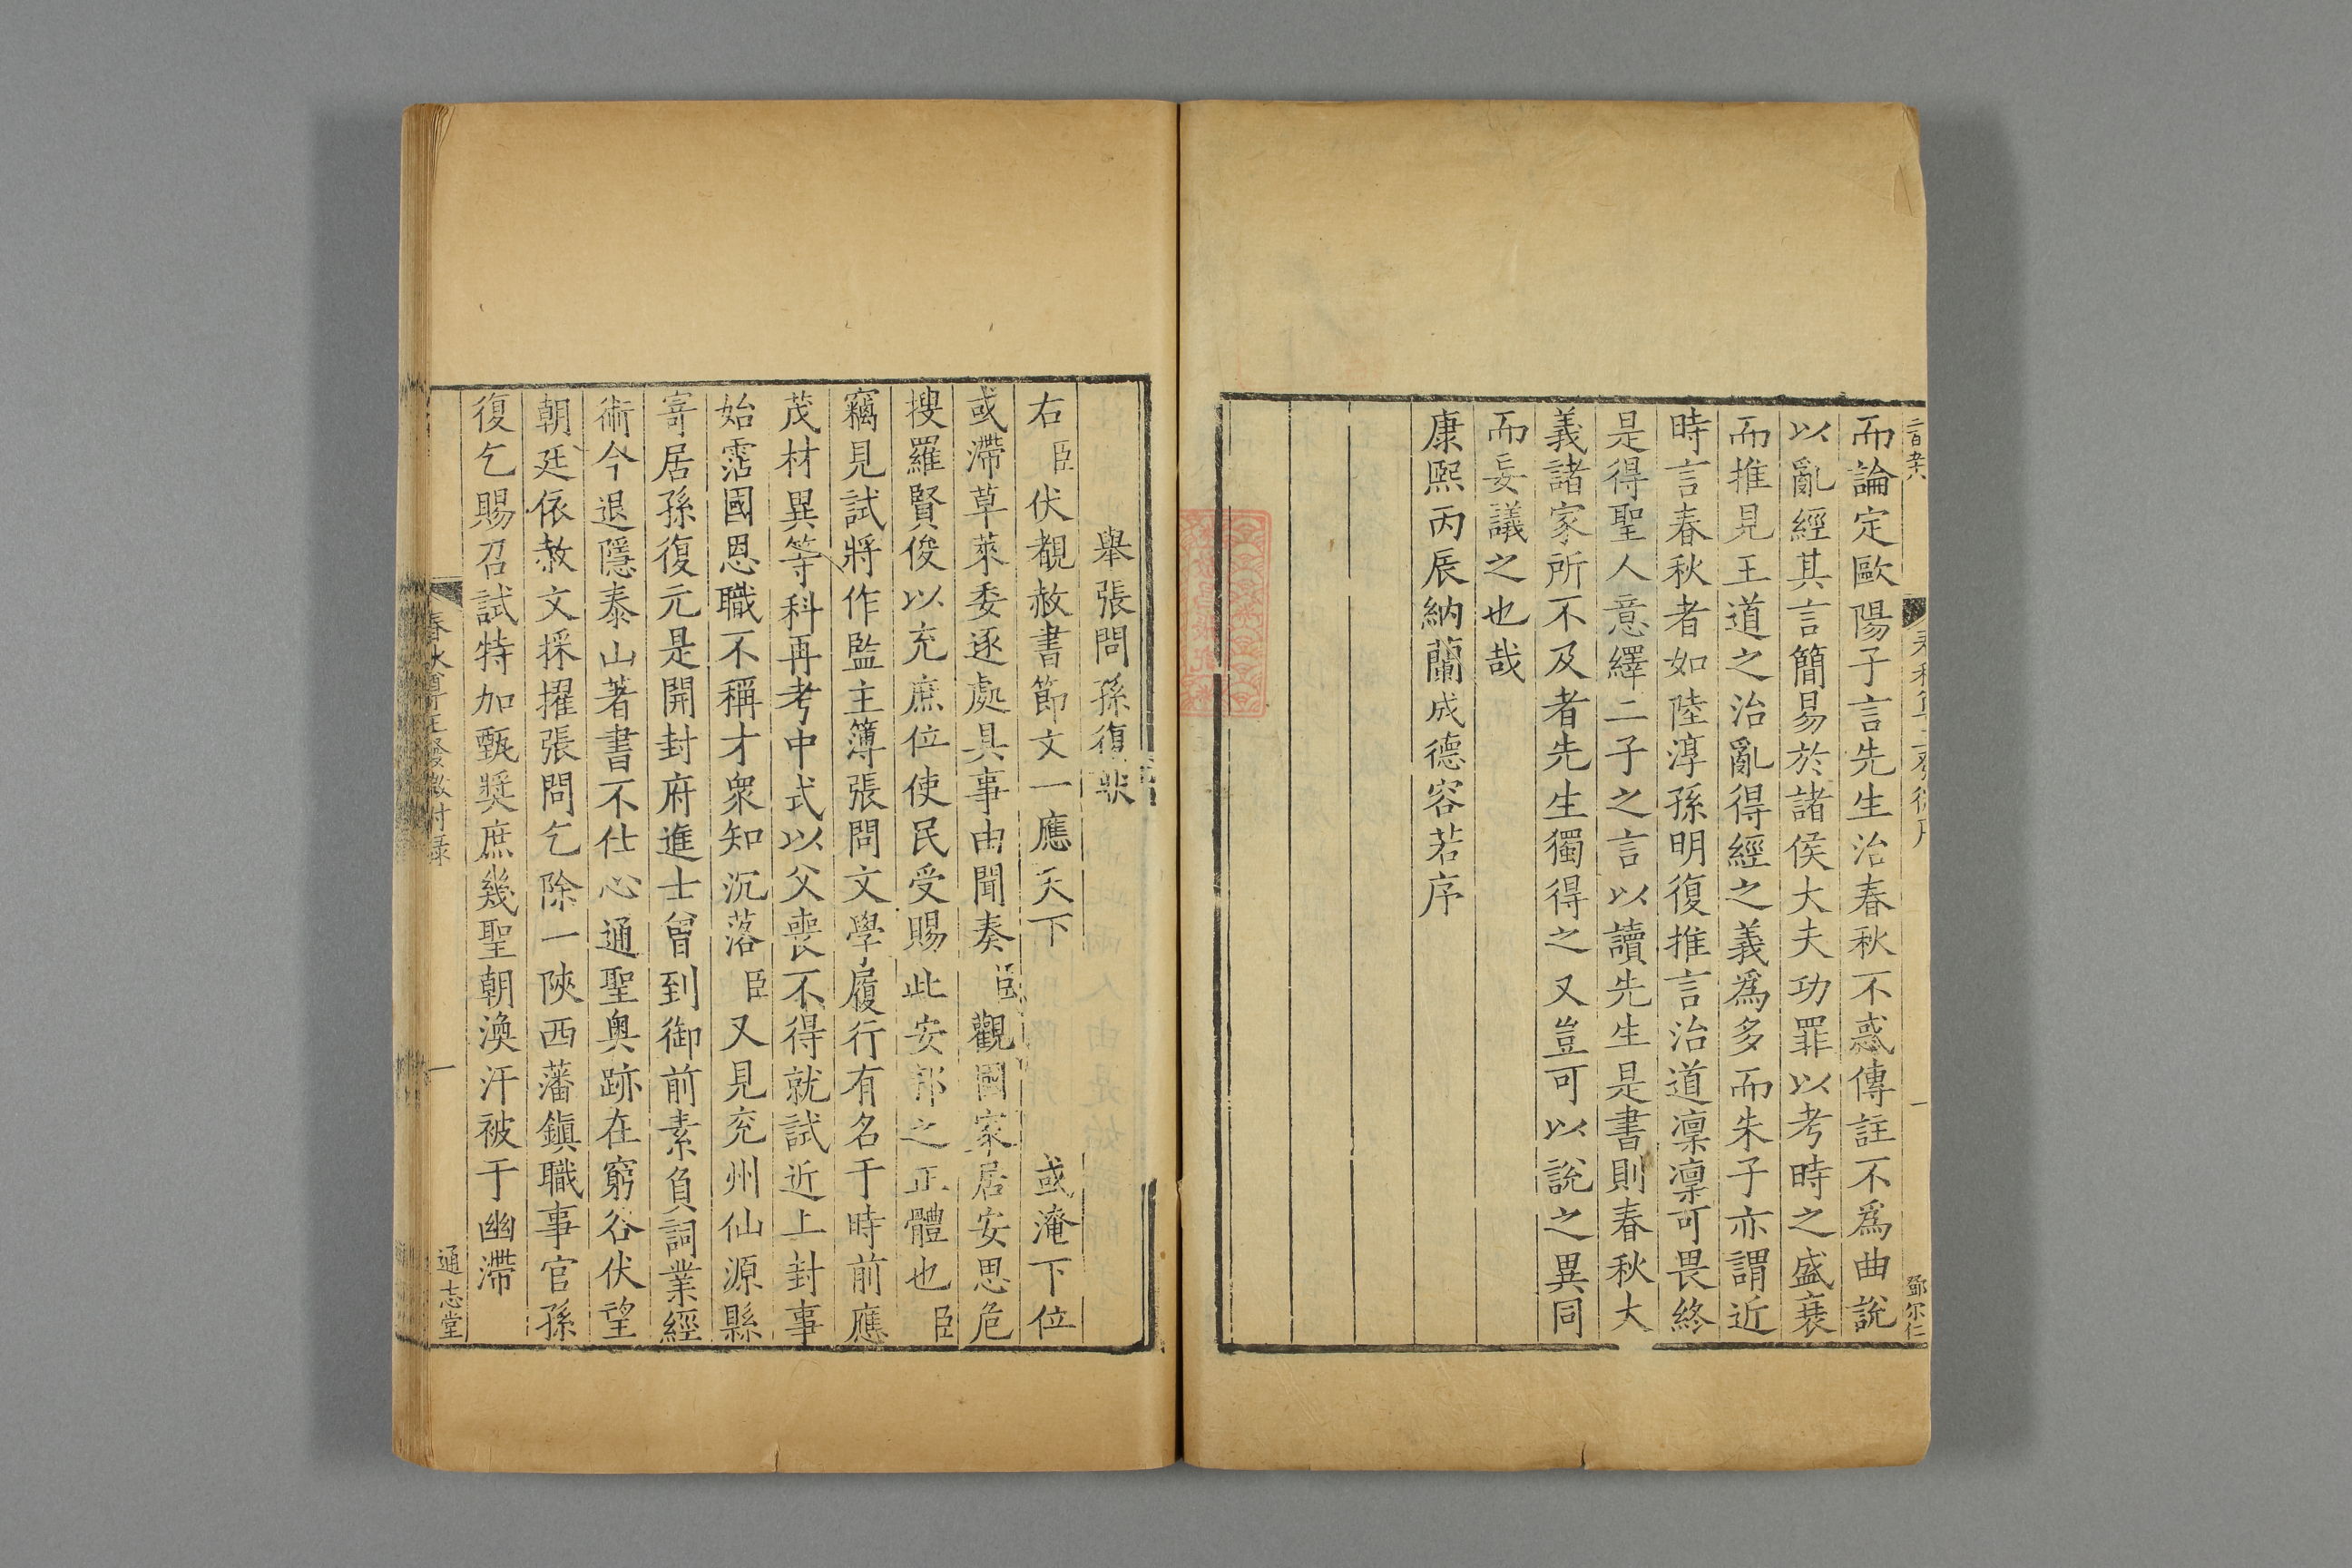 而論定歐陽子言先生治春秋不惑傳註不爲曲說
以亂經其言簡易於諸侯大夫功罪以考時之盛衰
而推見王道之治亂得經之義爲多而朱子亦謂近
時言春秋者如陸淳孫明復推言治道凜凜可畏終
是得聖人意繹二子之言以讀先生是書則春秋大
義諸家所不及者先生獨得之又豈可以說之異同
而妄議之也哉
康熙丙辰納蘭成德容若序
鄧尔仁
舉張問孫復狀
右臣伏覩赦書節文一應天下或淹下位
或滯草萊委逐處具事由聞奏臣觀國家居安思危
搜羅賢俊以充庶位使民受賜此安邦之正體也臣
竊見試將作監主簿張問文學履行有名于時前應
茂材異等科再考中式以父喪不得就試近上封事
始霑國恩職不稱才衆知沉落臣又見兖州仙源縣
寄居孫復元是開封府進士曾到御前素負詞業經
術今退隱泰山著書不仕心通聖奥跡在窮谷伏望
朝廷依赦文採擢張問乞除一陝西藩鎮職事官孫
復乞賜召試特加甄奬庶幾聖朝渙汗被于幽滯
春秋尊王發微附錄
一
通志堂